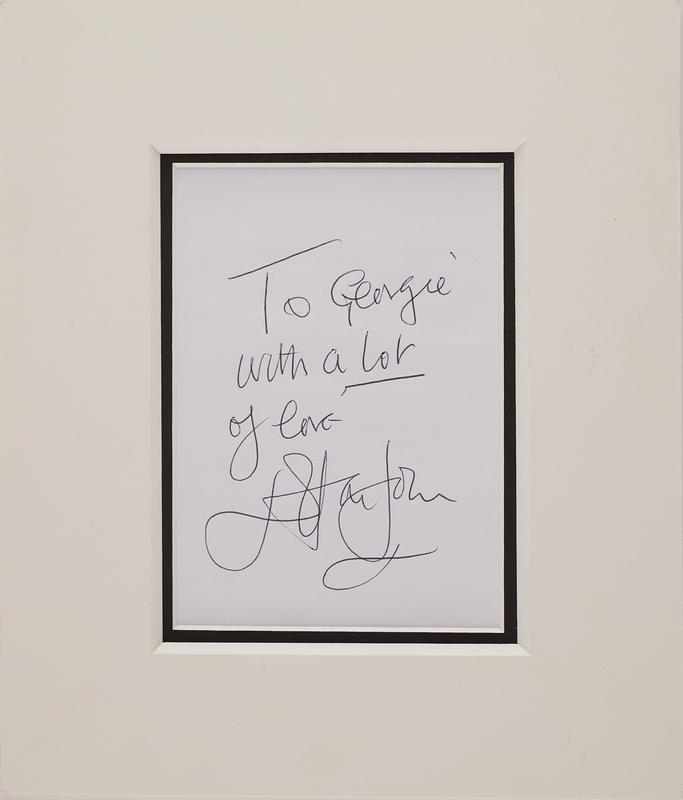 To Georgie
with a lot
of love
Elton John